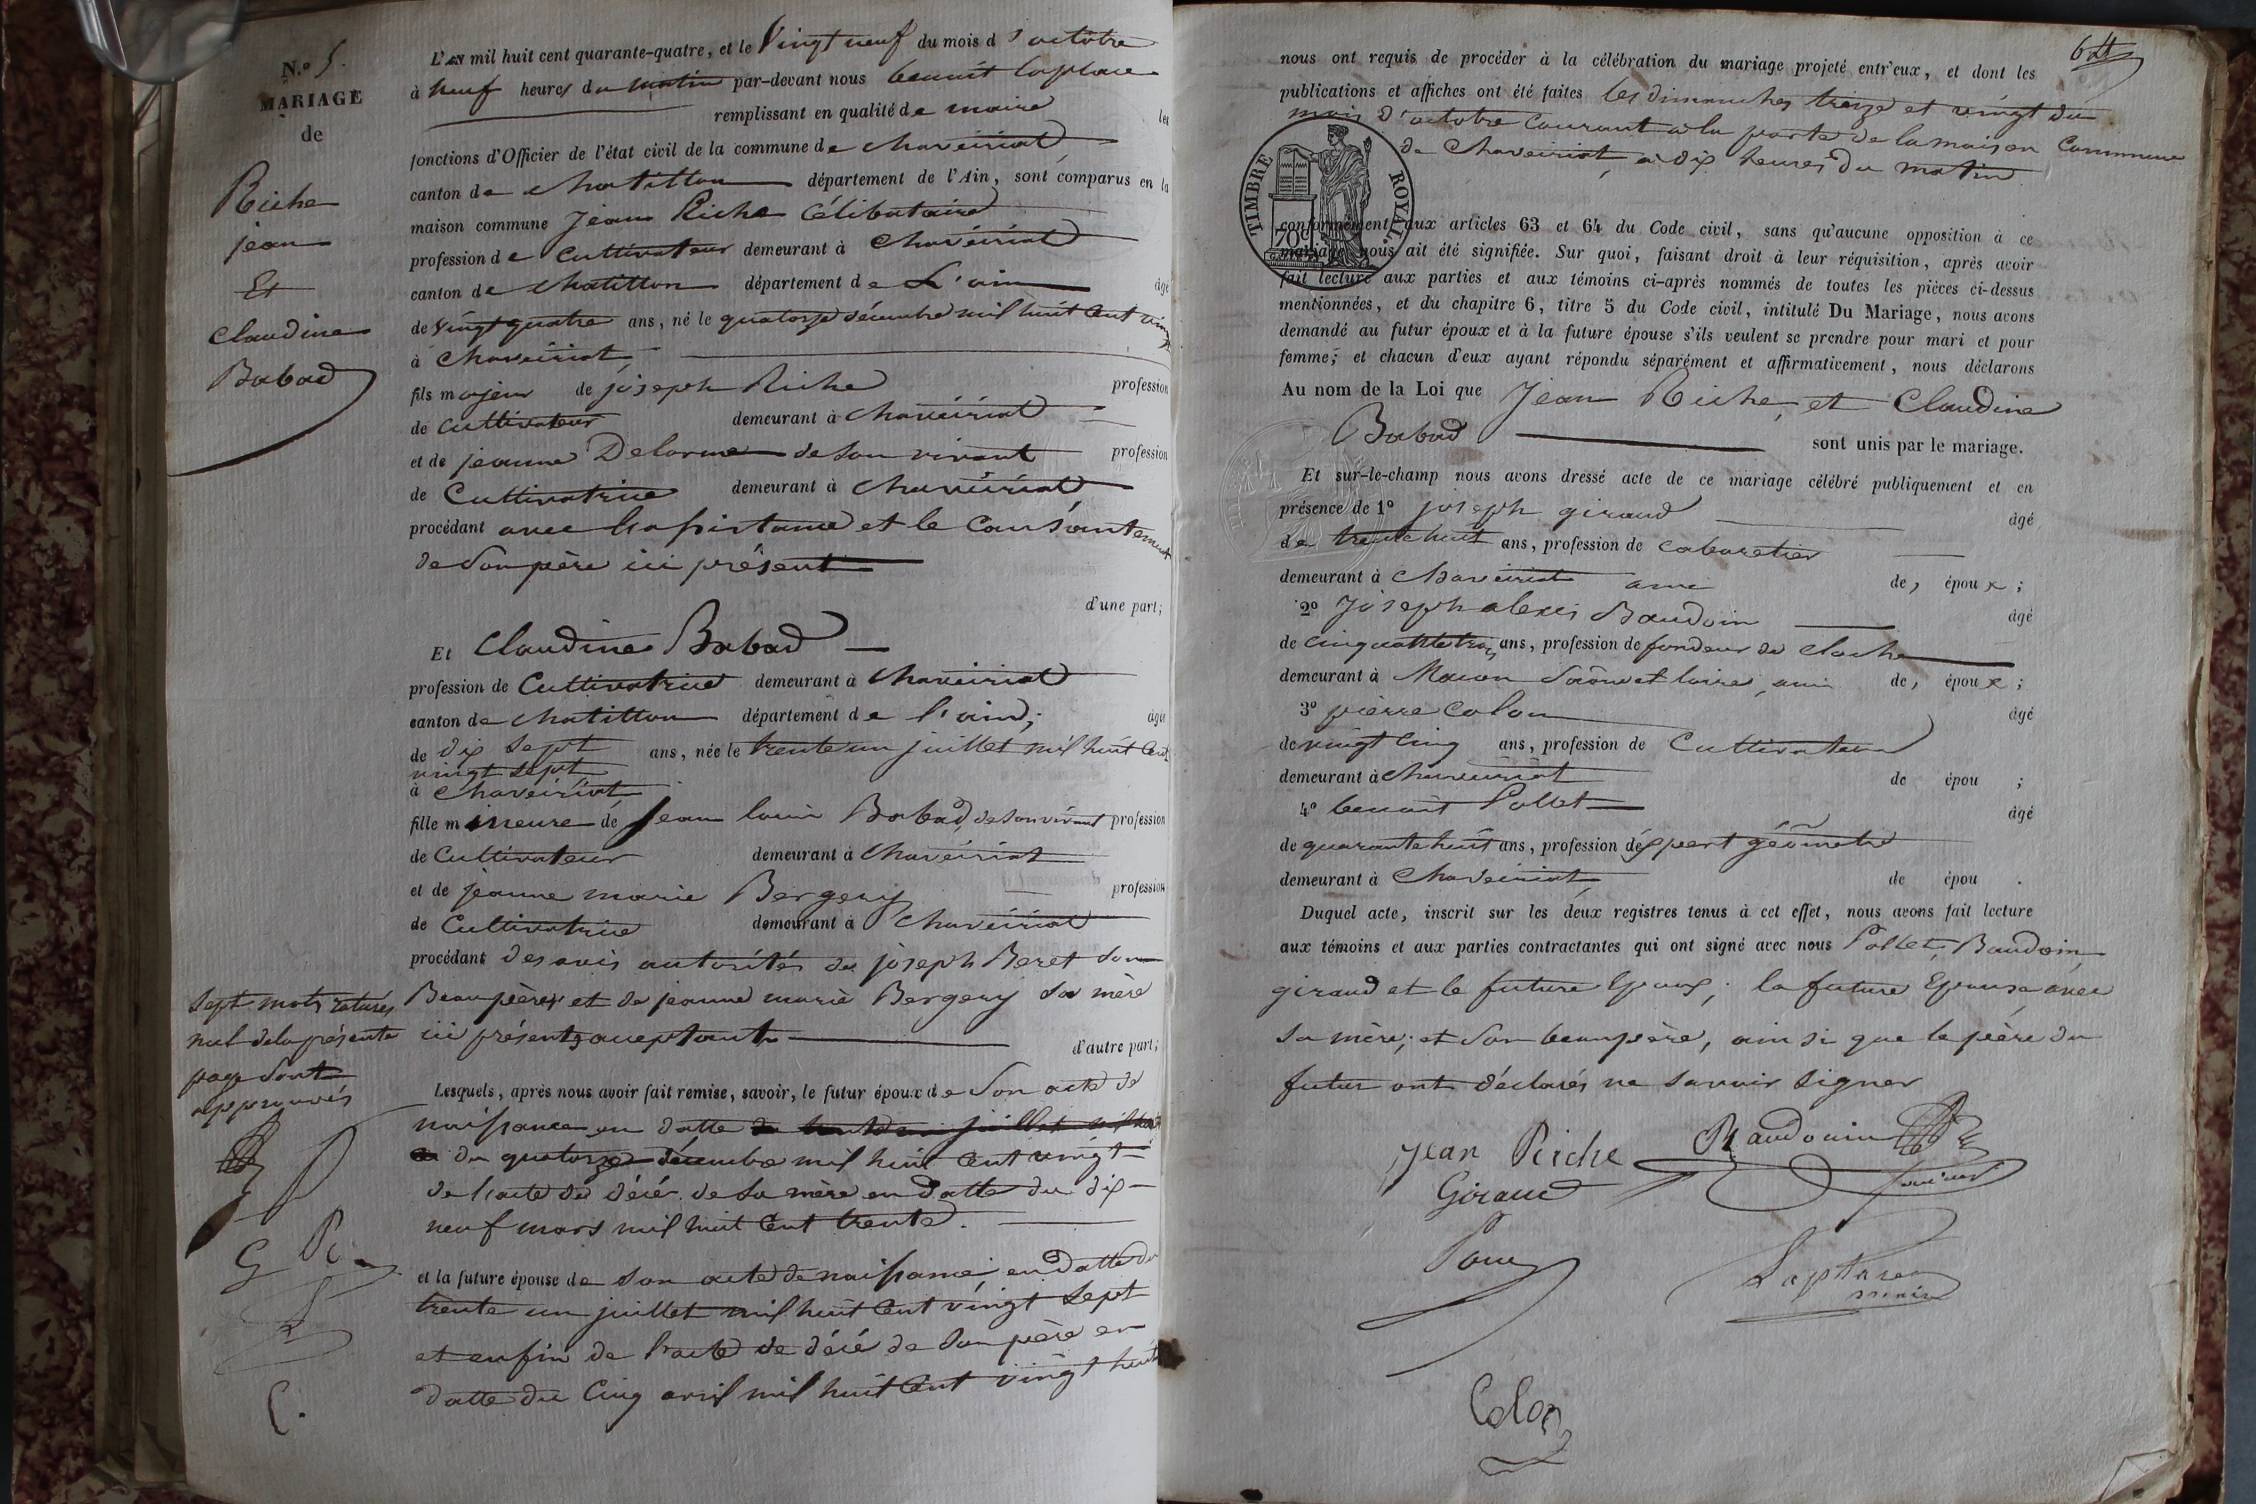 N.o 5.
MARIAGE
de
Riche
jean
Et
Claudine
Babad
L'AN mil huit cent quarante-quatre, et le Vingt neuf du mois d'octobre
à neuf heures du matin par-devant nous benoit laplace
remplissant en qualité de maire les
fonctions d'Officier de l'état civil de la commune de chaveiriat,
canton de chatillon département de l'Ain, sont comparus en la
maison commune Jean Riche Célibataire
profession de Cultivateur demeurant à Chavéiriat
canton de chatillon département de L'ain âgé
de vingt quatre ans, né le quatorze décembre mil huit Cent vingt
à Chaveiriat,
fils majeur de joseph Riche profession
de Cultivateur demeurant à Chavéiriat
et de jeanne Delorme de son vivant profession
de Cultivatrice demeurant à Chavéiriat
procédant avec l'assistance et le Consentement
de Son père ici présent
d'une part;
Et Claudine Babad
profession de Cultivatrice demeurant à Chaveiriat
canton de chatillon département de l'ain; âgée
de dix sept ans, née le trente un juillet mil huit Cent
vingt sept
à Chavéiriat,
fille mineure de Jean louis Babad, de son vivant profession
de Cultivateur demeurant à Chavéiriat
et de jeanne marie Bergery profession
de Cultivatrice demeurant à Chavéiriat
procédant des avis autorités de joseph Beret Son
Beaupère et de jeanne marie Bergery Sa mère
ici présents acceptants
d'autre part;
Sept mots raturés
nul de la présente
page Sont
approuvés
Lesquels, après nous avoir fait remise, savoir, le futur époux de Son acte de
naissance en datte
du quatorze décembre mil huit Cent vingt
de l'acte de décé de Sa mère en datte du dix
neuf mars mil huit Cent trente.
et la future épouse de Son acte de naissance en datte du
trente un juillet mil huit Cent vingt Sept
et enfin de l'acte de décé de Son père en
datte du Cinq avril mil huit Cent vingt huit
G R
C.
64
nous ont requis de procéder à la célébration du mariage projeté entr'eux, et dont les
publications et affiches ont été faites les dimanches treize et vingt du
mois d'octobre Courant à la porte de la maison Commune
de Chaveiriat, à dix heures du matin
TIMBRE ROYAL
70c
conformément aux articles 63 et 64 du Code civil, sans qu'aucune opposition à ce
mariage nous ait été signifiée. Sur quoi, faisant droit à leur réquisition, après avoir
fait lecture aux parties et aux témoins ci-après nommés de toutes les pièces ci-dessus
mentionnées, et du chapitre 6, titre 5 du Code civil, intitulé Du Mariage, nous avons
demandé au futur époux et à la future épouse s'ils veulent se prendre pour mari et pour
femme; et chacun d'eux ayant répondu séparément et affirmativement, nous déclarons
Au nom de la Loi que Jean Riche, et Claudine
Babad sont unis par le mariage.
Et sur-le-champ nous avons dressé acte de ce mariage célébré publiquement et en
présence de 1o joseph giraud âgé
de trente huit ans, profession de cabaretier
demeurant à Chaveiriat ami de, époux;
2o Joseph alexis Baudoin âgé
de cinquante trois ans, profession de fondeur de cloche
demeurant à Macon Saône et loire, ami de, époux;
3o pierre Colon âgé
de vingt Cinq ans, profession de Cultivateur
demeurant à Chaveiriat de épou ;
4o benoit Pollet âgé
de quarante huit ans, profession d'expert géomètre
demeurant à Chaveiriat, de épou .
Duquel acte, inscrit sur les deux registres tenus à cet effet, nous avons fait lecture
aux témoins et aux parties contractantes qui ont signé avec nous Pollet, Baudoin,
giraud et le future Epoux; la future Epouse avec
sa mère; et Son beaupère, ainsi que le père du
futur ont déclarés ne savoir Signer
Jean Riche Baudouin
Giraud
Laplace
maire
Colon